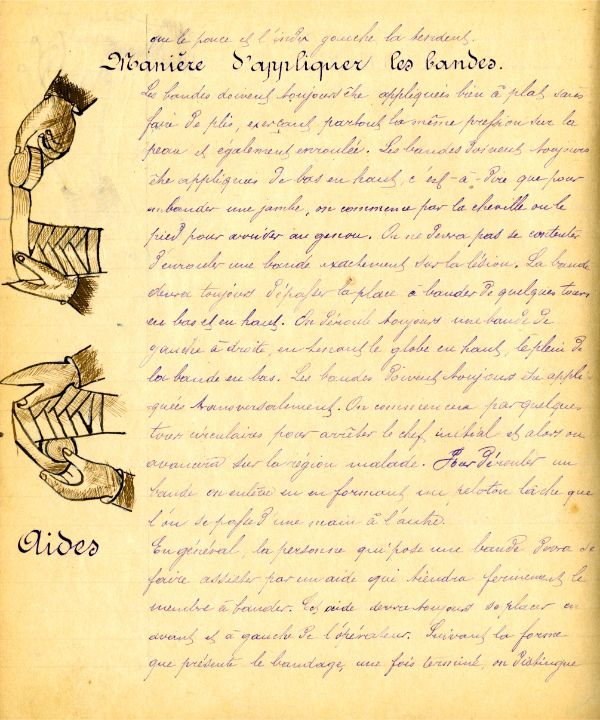 que le pouce et l'index gauche la tendent.
Manière d'appliquer les bandes.
Les bandes doivent toujours être appliquées bien à plat sans
faire de plis, exerçant partout la même pression sur la
peau et également enroulée. Les bandes doivent toujours
être appliquées de bas en haut, c'est-à-dire que pour
bander une jambe, on commence par la cheville ou le
pied pour arriver au genou. On ne devra pas se contenter
d'enrouler une bande exactement sur la lésion. La bande
devra toujours dépasser la place à bander de quelques tours
en bas et en haut. On déroule toujours une bande de
gauche à droite, en tenant le globe en haut, le plein de
la bande en bas. Les bandes doivent toujours être appli-
quées transversalement. On commencera par quelques
tours circulaires pour arrêter le chef initial et alors on
avancera sur la région malade. Pour dérouler un
bande on enlève en en formant un peloton lâche que
l'on se passe d'une main à l'autre.
Aides
En général, la personne qui pose une bande devra se
faire assister par un aide qui tiendra fermement le
membre à bander. Cet aide devra toujours se placer en
avant et à gauche de l'opérateur. Suivant la forme
que présente le bandage, une fois terminé, on distingue